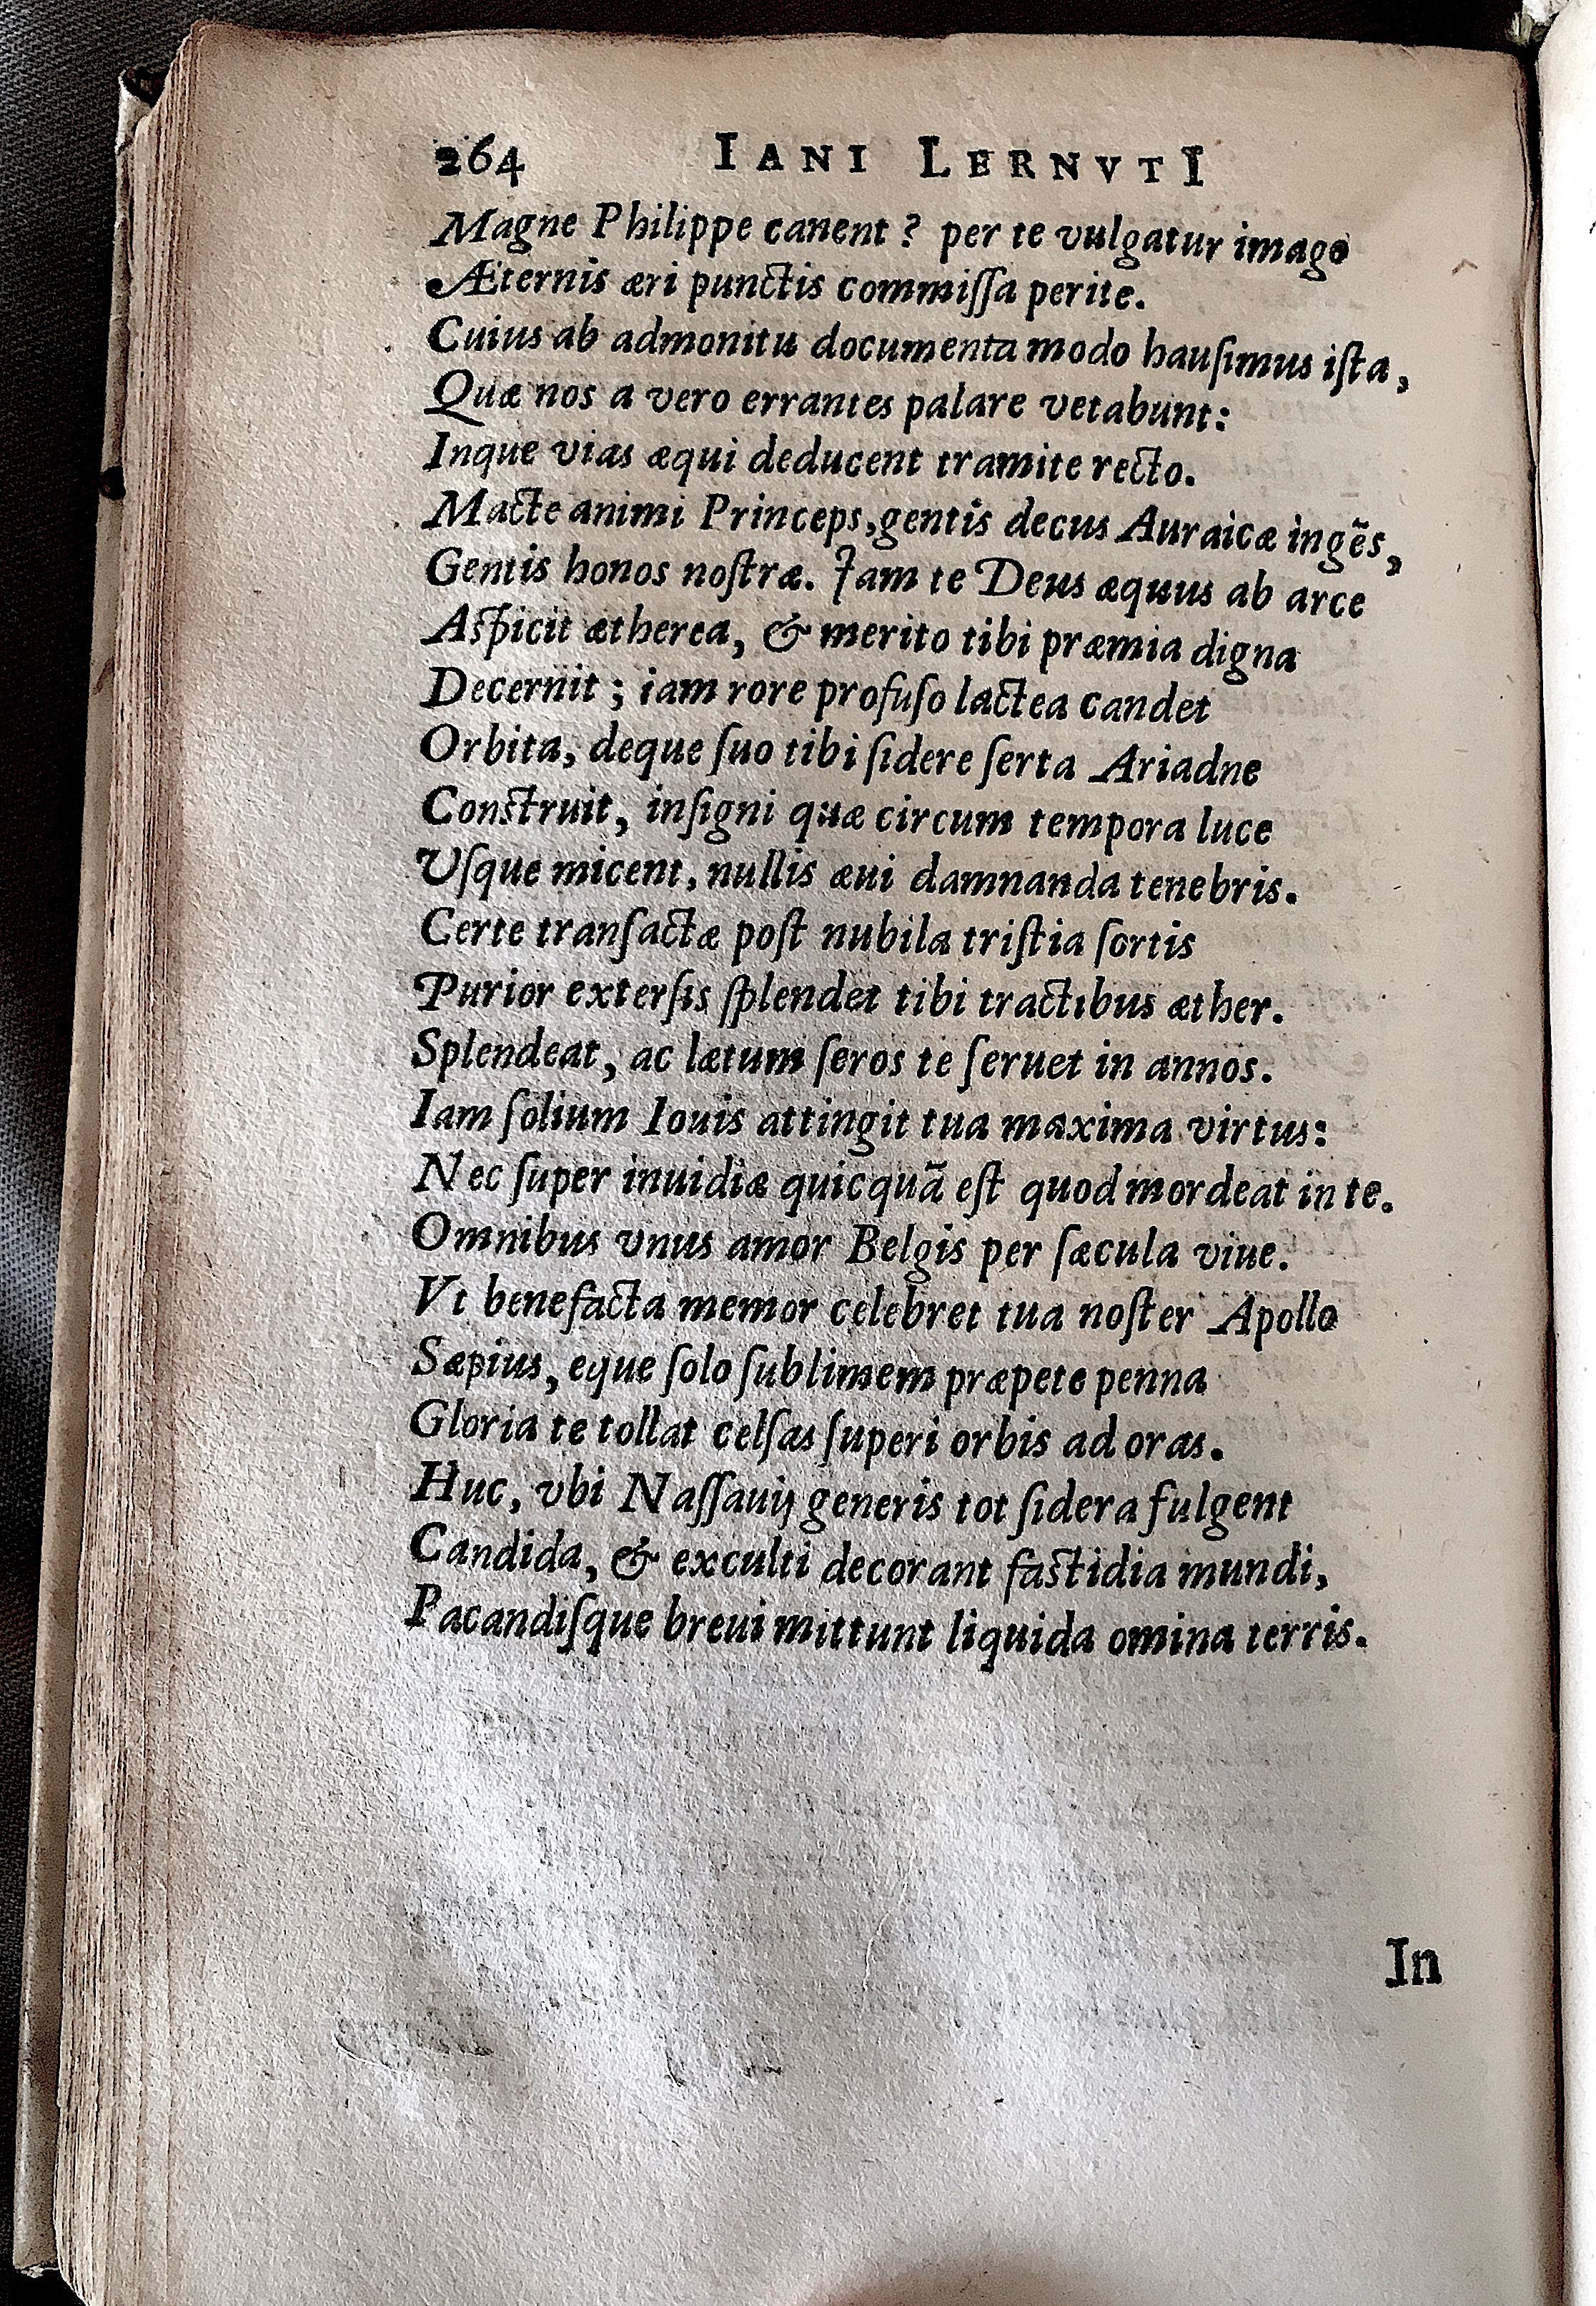 264 IANI LERNVTI
Magne Philippe canent? per te vulgatur imago
Æternis æri punctis commiſſa perite.
Cuius ab admonitu documenta modo hauſimus iſta,
Quæ nos a vero errantes palare vetabunt:
Inque vias æqui deducent tramite recto.
Macte animi Princeps, gentis decus Auraicæ ingẽs,
Gentis honos noſtræ. Iam te Deus æquus ab arce
Aſpicit ætherea, & merito tibi præmia digna
Decernit; iam rore profuſo lactea candet
Orbita, deque ſuo tibi ſidere ſerta Ariadne
Conſtruit, inſigni quæ circum tempora luce
Uſque micent, nullis æui damnanda tenebris.
Certe tranſactæ poſt nubila triſtia ſortis
Purior exterſis ſplendet tibi tractibus æther.
Splendeat, ac lætum ſeros te ſeruet in annos.
Iam ſolium Iouis attingit tua maxima virtus:
Nec ſuper inuidiæ quicquã eſt quod mordeat in te.
Omnibus vnus amor Belgis per ſæcula viue.
Vt benefacta memor celebret tua noſter Apollo
Sæpius, eque ſolo ſublimem præpete penna
Gloria te tollat celſas ſuperi orbis ad oras.
Huc, vbi Naſſauij generis tot ſidera fulgent
Candida, & exculti decorant faſtidia mundi,
Pacandiſque breui mittunt liquida omina terris.
In